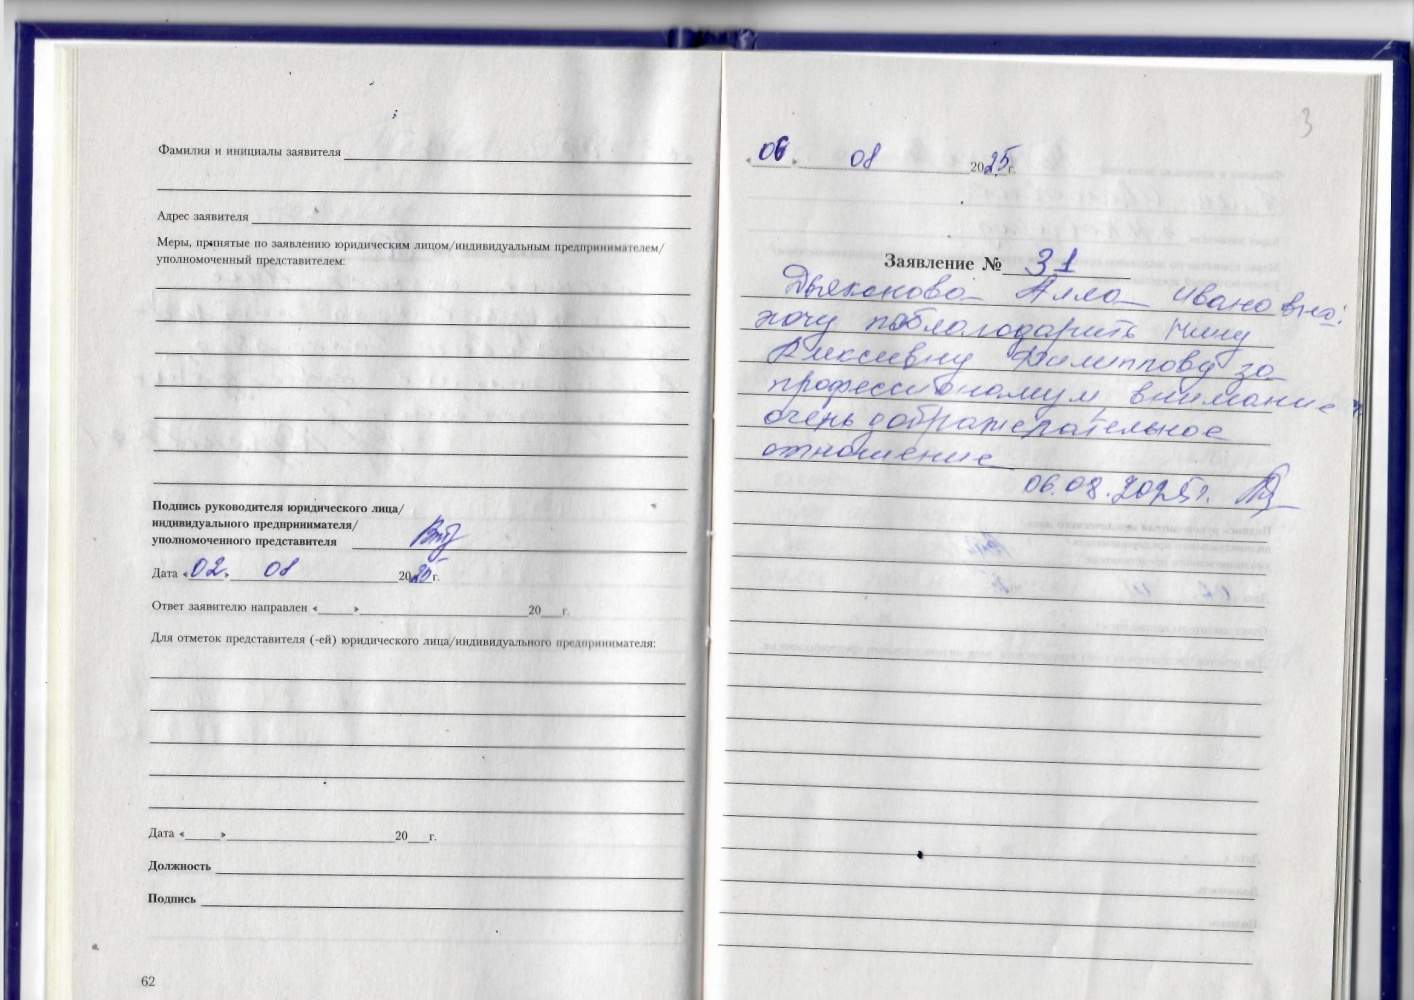 Фамилия и инициалы заявителя
Адрес заявителя
Меры, принятые по заявлению юридическим лицом/индивидуальным предпринимателем/
уполномоченный представителем:
Подпись руководителя юридического лица/
индивидуального предпринимателя/
уполномоченного представителя
Дата «02» 08 2025г.
Ответ заявителю направлен «___»___20___г.
Для отметок представителя (-ей) юридического лица/индивидуального предпринимателя:
Дата «___»___20___г.
Должность
Подпись
62
3
«06» 08 2025г.
Заявление № 31
Дьяконова Алла Ивановна:
хочу поблагодарить Нину
Филиппову за
профессионализм, внимание,
очень доброжелательное
отношение
06.08.2025г.